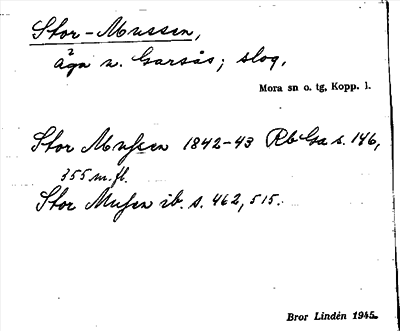 Stor-Mussen,
äga n. Garsås; slog,
Mora sn o. tg, Kopp. l.
Stor Mussen 1842-43 RbGa s. 146,
355 m. fl.
Stor Mussen ib. s. 462, 515.
Bror Lindén 1945.